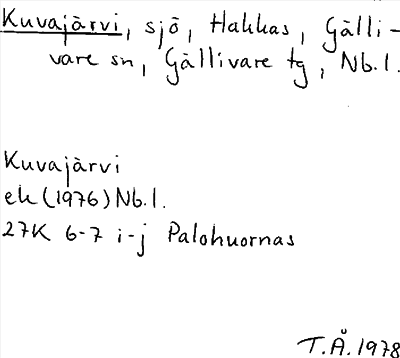 Kuvajärvi, sjö, Hakkas, Gälli-
vare sn, Gällivare tg, Nb.l.
Kuvajärvi
ek (1976) Nb.l.
27K 6-7 i-j Palohuornas
T.Å. 1978